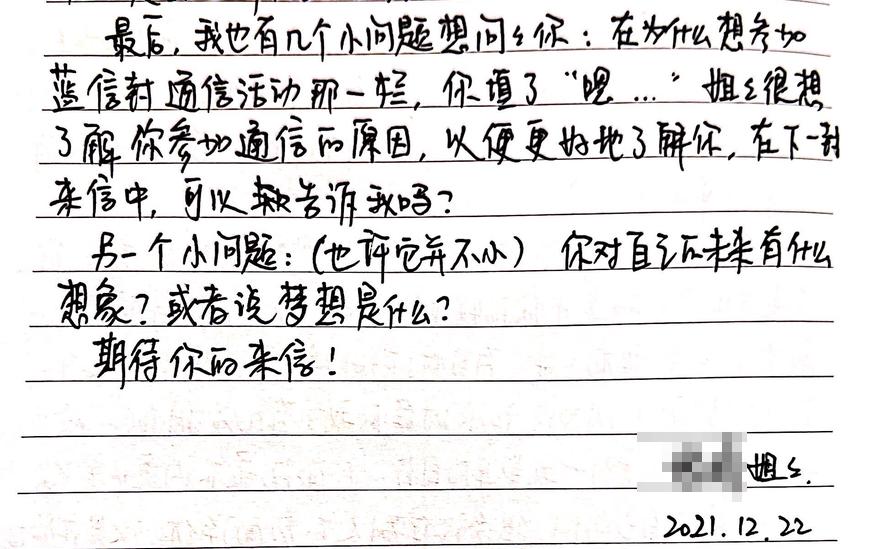 最后，我也有几个小问题想问问你：在为什么想参加
蓝信封通信活动那一栏，你填了“嗯…”姐姐很想
了解你参加通信的原因，以便更好地了解你，在下一封
来信中，可以告诉我吗？
另一个小问题：（也许它并不小） 你对自己的未来有什么
想象？或者说梦想是什么？
期待你的来信！
姐姐.
2021.12.22